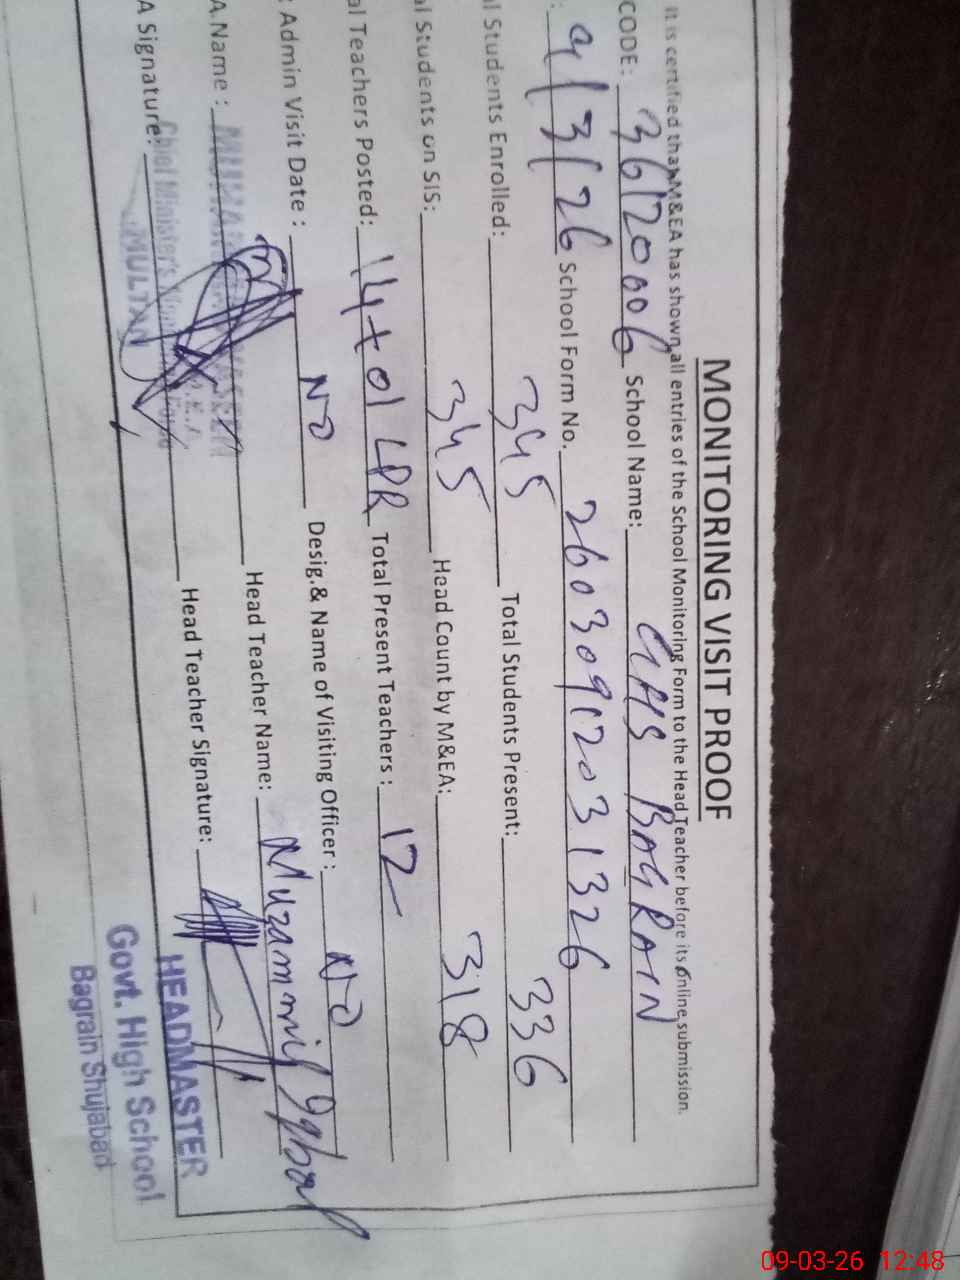 MONITORING VISIT PROOF
It is certified that M&EA has shown all entries of the School Monitoring Form to the Head Teacher before its online submission.
CODE: 36120006 School Name: GHS BAGRAIN
: 9/3/26 School Form No. 26030912031326
al Students Enrolled: 345 Total Students Present: 336
al Students on SIS: 345 Head Count by M&EA: 318
al Teachers Posted: 14+01 LPR Total Present Teachers : 12
: Admin Visit Date : NO Desig.& Name of Visiting Officer : NO
A.Name : MUHAMMAD Head Teacher Name: Muzammil Iqbal
A Signature: Head Teacher Signature:
Chief Minister's Monitoring Force
MULTAN
HEADMASTER
Govt. High School
Bagrain Shujabad
09-03-26 12:48